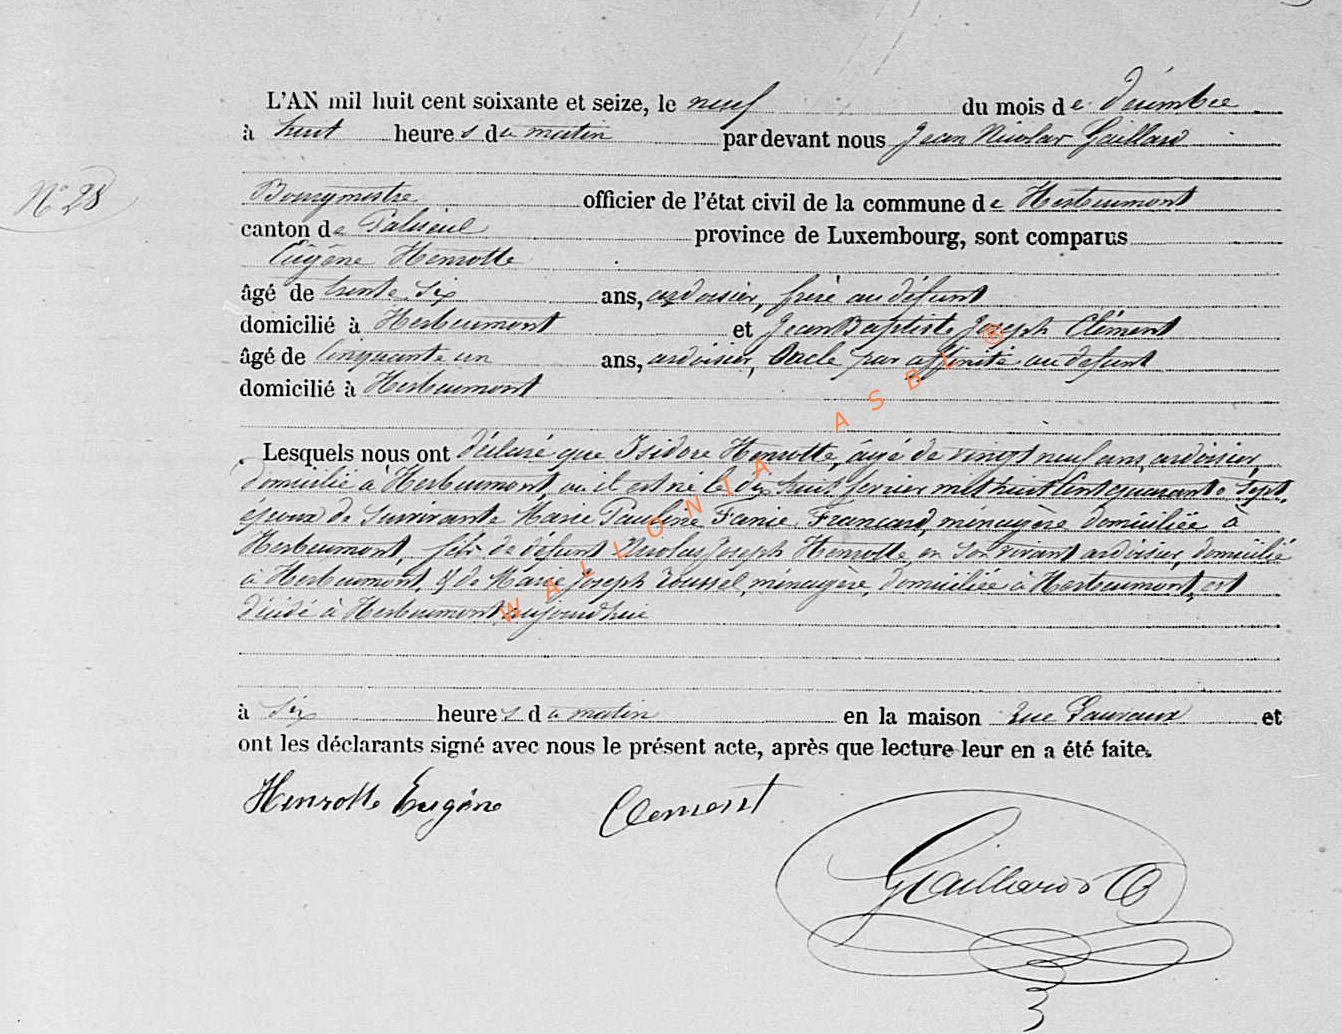 L'AN mil huit cent soixante et seize, le neuf du mois de Décembre
à huit heures du matin par devant nous Jean Nicolas Gaillard
N° 28
Bourgmestre officier de l'état civil de la commune de Herbeumont
canton de Paliseul province de Luxembourg, sont comparus
Eugène Henrotte
âgé de trente six ans, ardoisier, frère au défunt
domicilié à Herbeumont et Jean Baptiste Joseph Clément
âgé de Cinquante un ans, ardoisier, Oncle par affinité au défunt
domicilié à Herbeumont
Lesquels nous ont déclaré que Isidore Henrotte, âgé de vingt neuf ans, ardoisier,
domicilié à Herbeumont, où il est né le dix huit février mil huit cent quarante sept,
époux de survivante Marie Pauline Fanie Francard, ménagère domiciliée à
Herbeumont, fils de défunt Nicolas Joseph Henrotte, en son vivant ardoisier, domicilié
à Herbeumont, & de Marie Joseph Roussel, ménagère, domiciliée à Herbeumont, est
décédé à Herbeumont, aujourd'hui
à six heures du matin en la maison rue Lauvaux et
ont les déclarants signé avec nous le présent acte, après que lecture leur en a été faite.
Henrotte Eugène Clement
Gaillard
WALLONIA ASBL ®